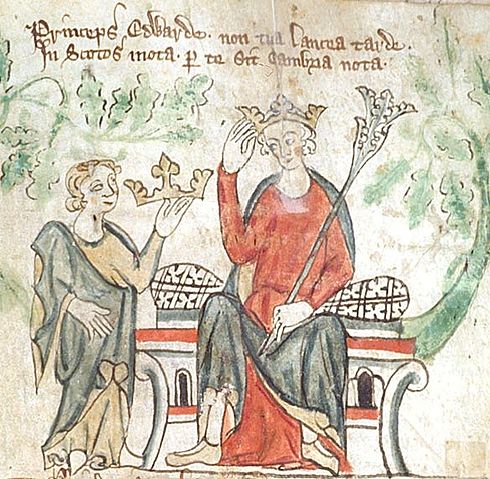 Princeps Edwarde . non tua Lancea tarde .
In Scotos mota . p te sit Cambria nota .